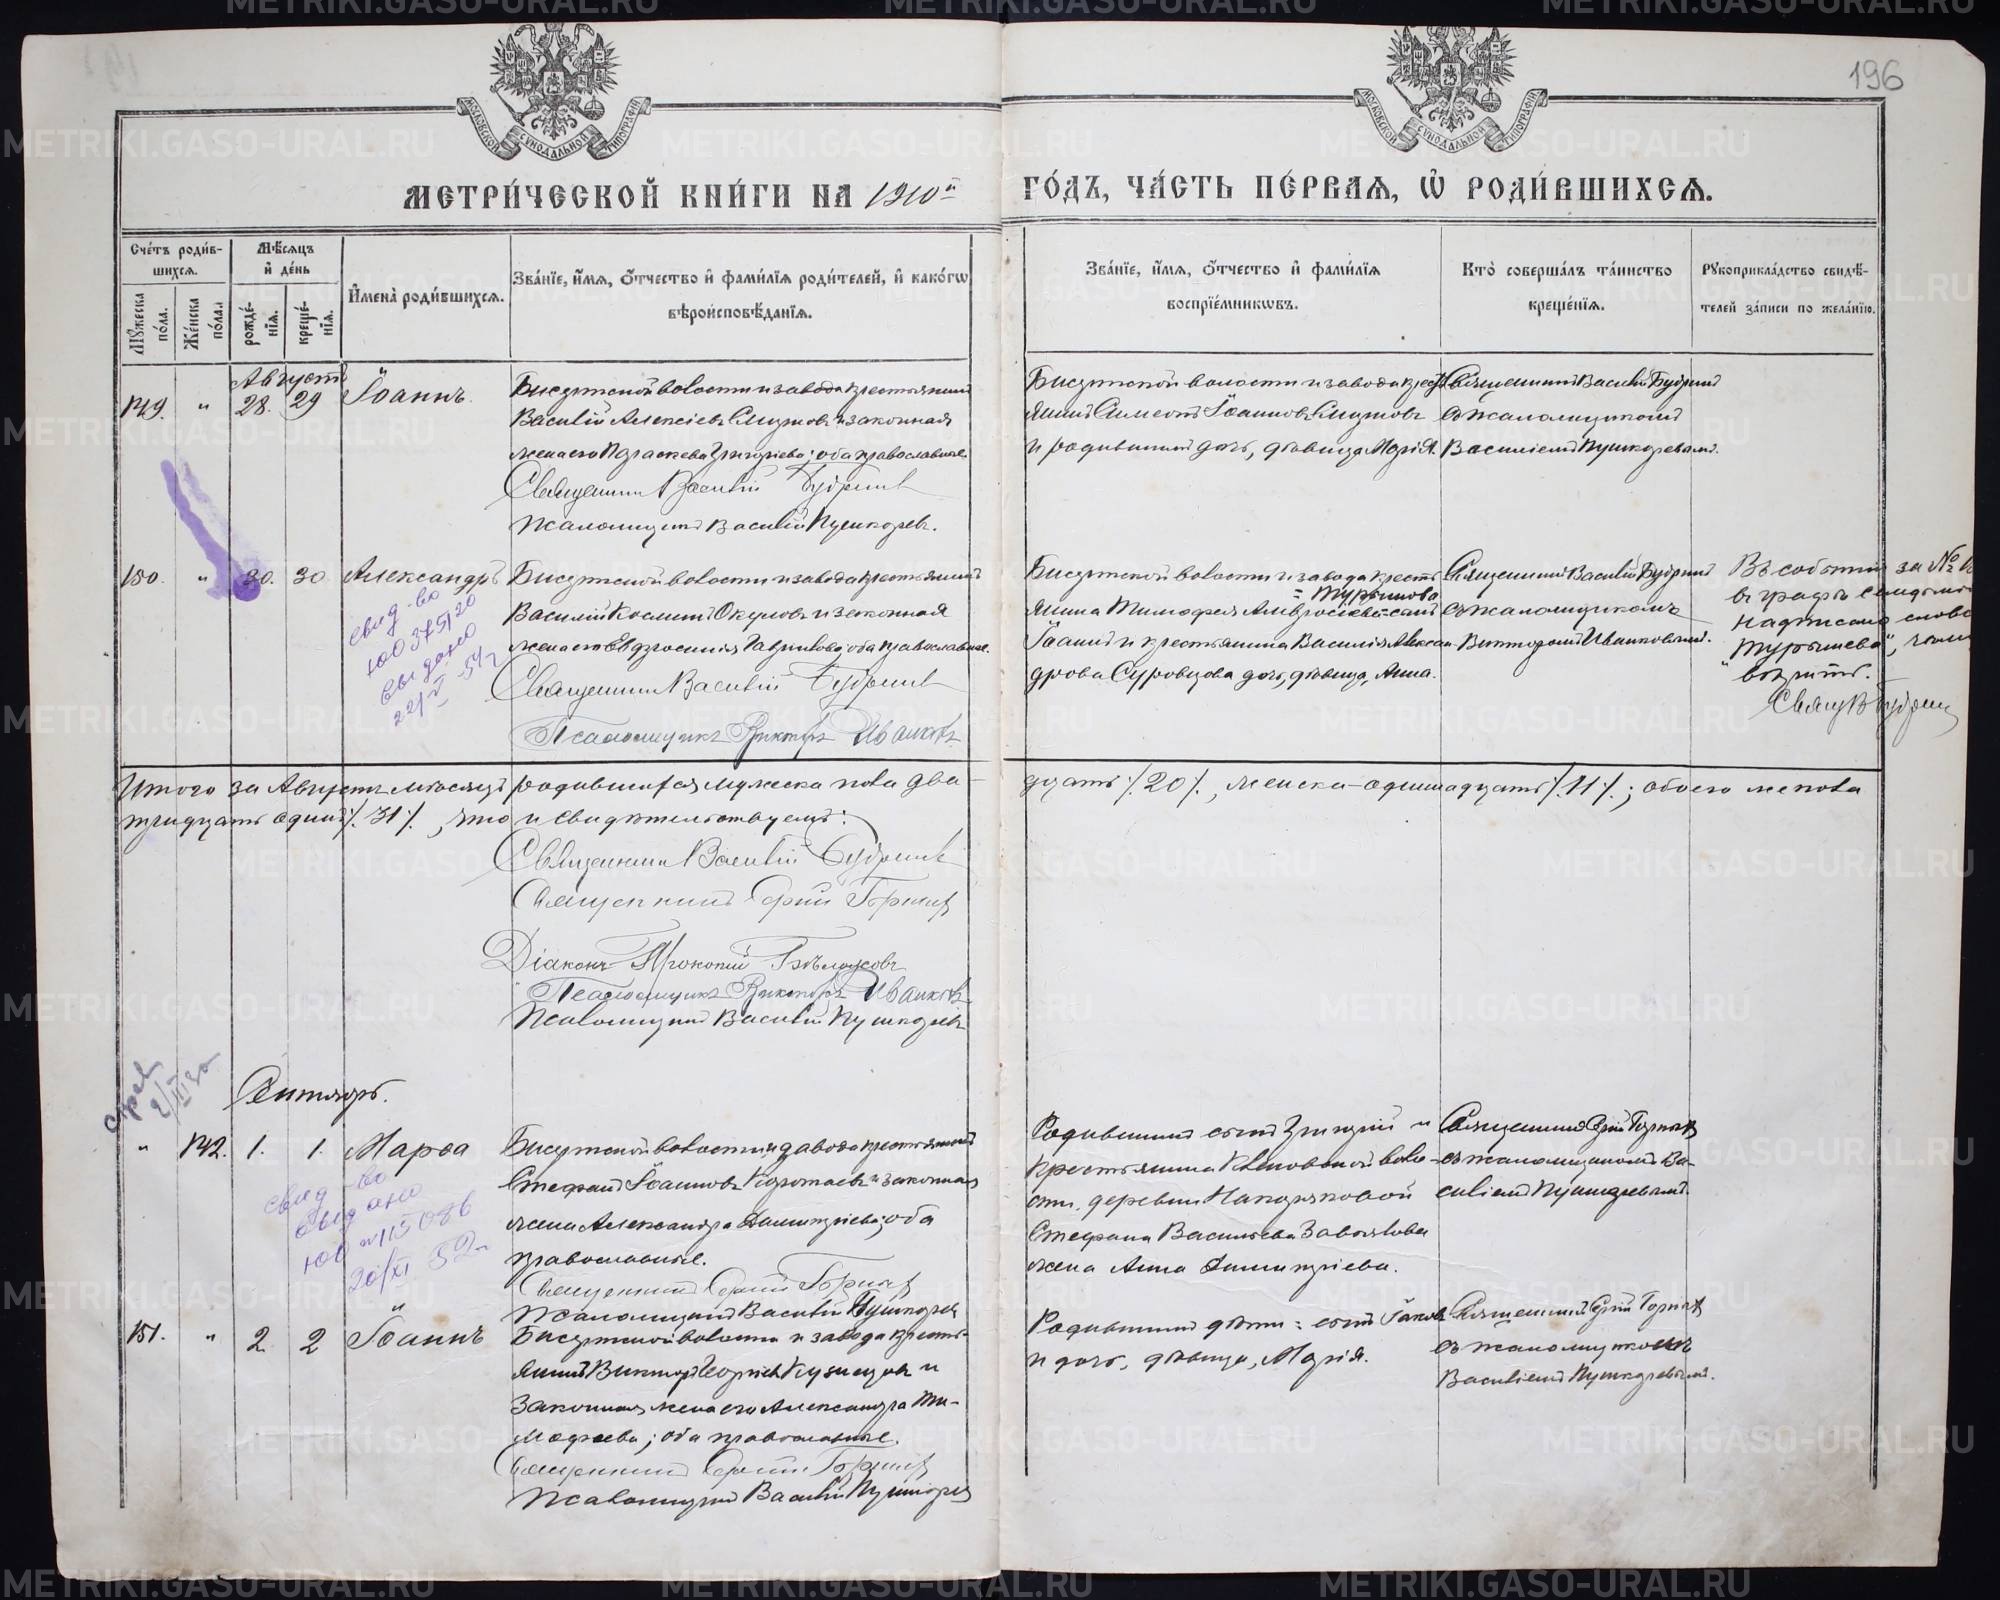 196
МОСКОВСКОЙ СУНОДАЛЬНОЙ ТИПОГРАФІИ
МОСКОВСКОЙ СУНОДАЛЬНОЙ ТИПОГРАФІИ
МЕТРИ́ЧЕСКОЙ КНИ́ГИ НА 1910й
ГО́ДЪ, ЧА́СТЬ ПЕ́РВАѦ, Ѡ РОДИ́ВШИХСѦ.
Сче́тъ роди́в-
шихсѧ.
Мѣ́сѧцъ
и҆ де́нь
Мꙋжеска по́ла.
Же́нска по́ла.
рожде́-
нїѧ.
креще́-
нїѧ.
И҆мена̀ роди́вшихсѧ.
Зва́нїе, и҆́мѧ, ѻ҆́тчество и҆ фами́лїѧ роди́телей, и҆ како́гѡ
вѣроисповѣ́данїѧ.
Зва́нїе, и҆́мѧ, ѻ҆́тчество и҆ фами́лїѧ
воспрїе́мникѡвъ.
Кто̀ соверша́лъ та́инство
креще́нїѧ.
Рꙋкоприкла́дство свидѣ́-
телей за́писи по жела́нїю.
Августъ
149. " 28. 29 Іоаннъ.
Бисертской волости и завода крестьянинъ
Василій Алексіевъ Смутовъ и законная
жена его Параскева Григоріева; оба православные.
Священникъ Василій Будринъ
Псаломщикъ Василій Пушкаревъ.
Бисертской волости и завода крест-
янинъ Симеонъ Іоанновъ Смутовъ
и родившихъ дочь, дѣвица Марія.
Священникъ Василій Будринъ
съ псаломщикомъ
Василіемъ Пушкаревымъ.
150. " 30. 30 Александръ
свид-во
ЮО 375120
выдано
22/V-54г
Бисертской волости и завода крестьянинъ
Василій Косминъ Окуловъ и законная
жена его Евфросинія Гаврилова; оба православные.
Священникъ Василій Будринъ
Псаломщикъ Викторъ Иванковъ
Бисертской волости и завода кресть-
янина Тимофея Амвросіева сынъ
Іоаннъ и крестьянина Василія Алексан-
дрова Суровцова дочь, дѣвица, Анна.
Священникъ Василій Будринъ
съ псаломщикомъ
Викторомъ Иванковымъ.
въ графѣ
надписано слово
Священ. В Будринъ
Итого за Августъ мѣсяцъ родившихся мужеска пола два-
дцать /.20/., женска-одиннадцать /.11/.; обоего же пола
тридцать одинъ /.31/., что и свидѣтельствуемъ:
Священникъ Василій Будринъ
Священникъ Сергій Горныхъ
Діаконъ Прокопій Бѣлоусовъ
Псаломщикъ Викторъ Иванковъ
Псаломщикъ Василій Пушкаревъ
Сентябрь.
" 142. 1. 1. Марѳа
свид-во
выдано
ЮО №115086
20/XI 52г
Бисертской волости и завода крестьянинъ
Стефанъ Іоанновъ Коротаевъ и законная
жена Александра Димитріева; оба
православные.
Священникъ Сергій Горныхъ
Псаломщикъ Василій Пушкаревъ
Родившихъ сынъ Григорій и
крестьянина Кленовской воло-
сти, деревни Накоряковой
Стефана Васильева Завьялова
жена Анна Димитріева.
Священникъ Сергій Горныхъ
съ псаломщикомъ Ва-
силіемъ Пушкаревымъ.
151. " 2. 2 Іоаннъ
Бисертской волости и завода кресть-
янинъ Викторъ Георгіевъ Кузнецовъ и
законная жена его Александра Ти-
мофеева; оба православные.
Священникъ Сергій Горныхъ
Псаломщикъ Василій Пушкаревъ
Родившихъ дѣти: сынъ Іаковъ
и дочь, дѣвица, Марія.
Священникъ Сергій Горныхъ
съ псаломщикомъ
Василіемъ Пушкаревымъ.
METRIKI.GASO-URAL.RU